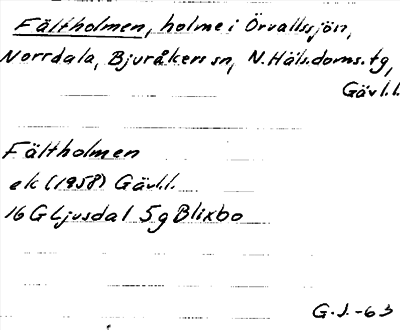 Fältholmen, holme i Örvallssjön,
Norrdala, Bjuråkers sn, N. Häls. doms. tg,
Gävl.l.
Fältholmen
ek (1958) Gävl.l.
16 G Ljusdal 5g Blixbo
G.J.-63